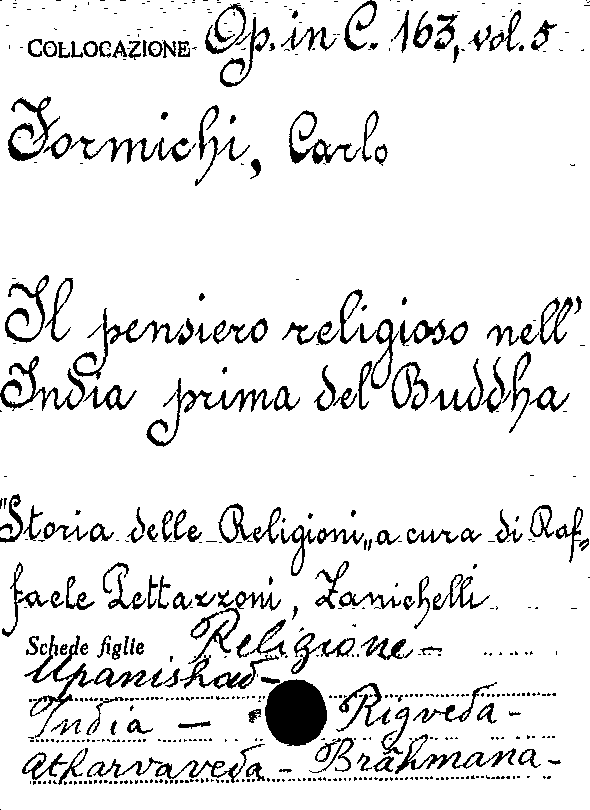 COLLOCAZIONE Op. in C. 163, vol. 5
Formichi, Carlo
Il pensiero religioso nell'
India prima del Buddha
"Storia delle Religioni„ a cura di Raf=
faele Pettazzoni, Zanichelli
Schede figlie Religione -
Upanishad -
India — Rigveda -
Atharvaveda - Brâhmana -